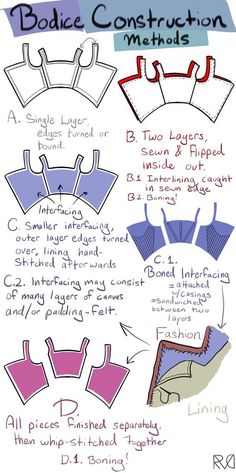 Bodice Construction
Methods
A. Single Layer,
edges turned or
bound.
B. Two Layers,
Sewn & flipped
inside out.
B.1 Interlining caught
in sewn edge
B.2. Boning!
Interfacing
C. Smaller interfacing,
outer layer edges turned
over, lining hand-
Stitched afterwards
C.1.
Boned Interfacing
= attached
w/casings
=Sandwiched
between two
layers
C.2. Interfacing may consist
of many layers of canvas
and/or padding-felt.
Fashion
Lining
D.
All pieces finished separately,
then whip-stitched together
D.1. Boning!